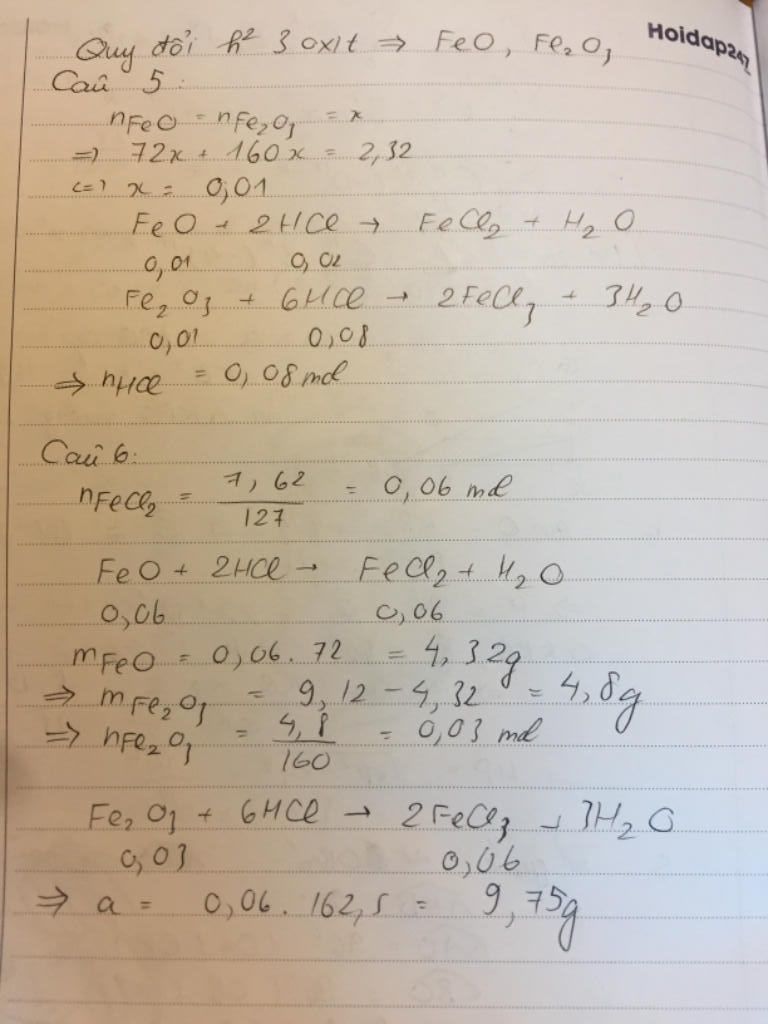 Hoidap247
Quy đổi h² 3 oxit ⇒ FeO, Fe₂O₃
Câu 5:
nFeO = nFe₂O₃ = x
=> 72x + 160x = 2,32
<=> x = 0,01
FeO + 2HCl → FeCl₂ + H₂O
0,01 0,02
Fe₂O₃ + 6HCl → 2FeCl₃ + 3H₂O
0,01 0,08
=> nHCl = 0,08 mol
Câu 6:
nFeCl₂ = 7,62 / 127 = 0,06 mol
FeO + 2HCl → FeCl₂ + H₂O
0,06 0,06
mFeO = 0,06 . 72 = 4,32g
=> mFe₂O₃ = 9,12 - 4,32 = 4,8g
=> nFe₂O₃ = 4,8 / 160 = 0,03 mol
Fe₂O₃ + 6HCl → 2FeCl₃ + 3H₂O
0,03 0,06
=> a = 0,06 . 162,5 = 9,75g